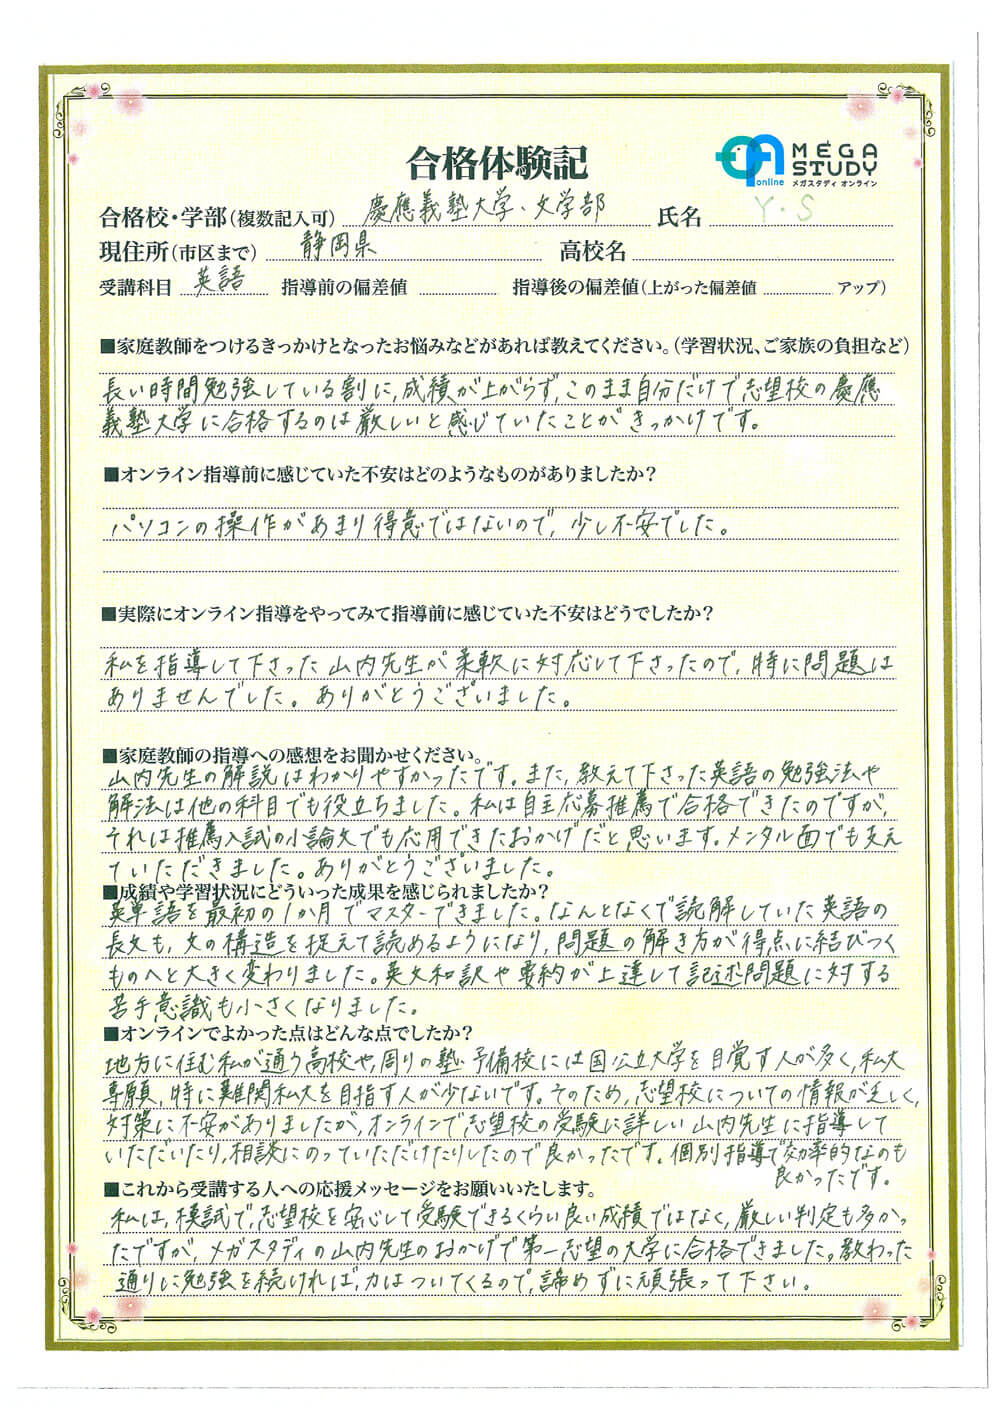 合格体験記
MEGA STUDY
online メガスタディ オンライン
合格校・学部(複数記入可) 慶應義塾大学、文学部 氏名 Y・S
現住所(市区まで) 静岡県 高校名
受講科目 英語 指導前の偏差値 指導後の偏差値(上がった偏差値 アップ)
■家庭教師をつけるきっかけとなったお悩みなどがあれば教えてください。(学習状況、ご家族の負担など)
長い時間勉強している割に、成績が上がらず、このまま自分だけで志望校の慶應
義塾大学に合格するのは厳しいと感じていたことがきっかけです。
■オンライン指導前に感じていた不安はどのようなものがありましたか?
パソコンの操作があまり得意ではないので、少し不安でした。
■実際にオンライン指導をやってみて指導前に感じていた不安はどうでしたか?
私を指導して下さった山内先生が柔軟に対応して下さったので、特に問題は
ありませんでした。ありがとうございました。
■家庭教師の指導への感想をお聞かせください。
山内先生の解説はわかりやすかったです。また、教えて下さった英語の勉強法や
解法は他の科目でも役立ちました。私は自主応募推薦で合格できたのですが、
それは推薦入試の小論文でも応用できたおかげだと思います。メンタル面でも支え
ていただきました。ありがとうございました。
■成績や学習状況にどういった成果を感じられましたか?
英単語を最初の1か月でマスターできました。なんとなくで読解していた英語の
長文も、文の構造を捉えて読めるようになり、問題の解き方が得点に結びつく
ものへと大きく変わりました。英文和訳や要約が上達して記述問題に対する
苦手意識も小さくなりました。
■オンラインでよかった点はどんな点でしたか?
地方に住む私が通う高校や、周りの塾・予備校には国公立大学を目覚す人が多く、私大
専願、特に難関私大を目指す人が少ないです。そのため、志望校についての情報が乏しく、
対策に不安がありましたが、オンラインで志望校の受験に詳しい山内先生に指導して
いただいたり、相談にのっていただけたりしたので良かったです。個別指導で効率的なのも
良かったです。
■これから受講する人への応援メッセージをお願いいたします。
私は、模試で、志望校を安心して受験できるくらい良い成績ではなく、厳しい判定も多かっ
たですが、メガスタディの山内先生のおかげで第一志望の大学に合格できました。教わった
通りに勉強を続ければ、力はついてくるので、諦めずに頑張って下さい。